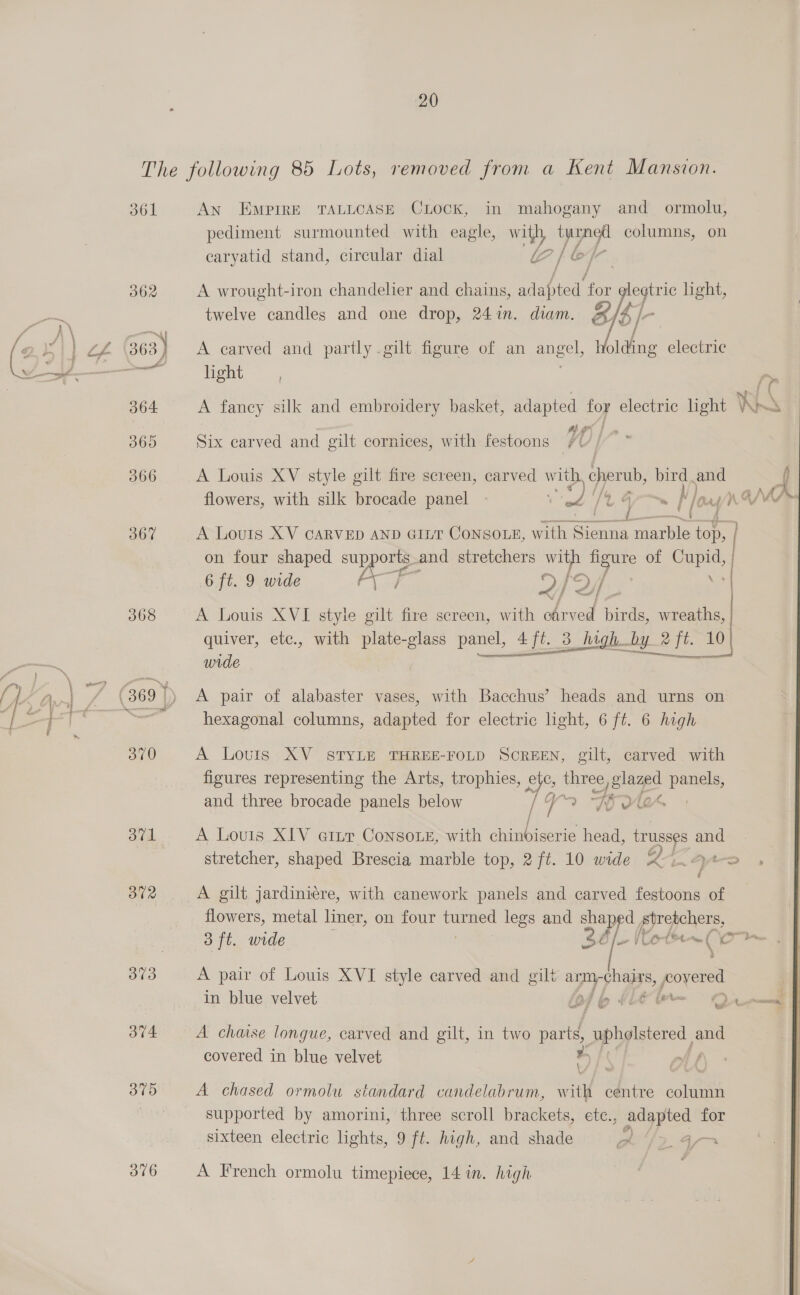 20
The following 85 Lots, removed from a Kent Mansion.
361 AN EMPIRE TALLCASE CLOCK, in mahogany and ormolu,
pediment surmounted with eagle, with turned columns, on
caryatid stand, circular dial
362 A wrought-iron chandelier and chains, adapted for electric light,
twelve candles and one drop, 24 in. diam.
363 A carved and partly gilt figure of an angel, holding electric
light
364 A fancy silk and embroidery basket, adapted for electric light
365 Six carved and gilt cornices, with festoons
366 A Louis XV style gilt fire screen, carved with cherub, bird and
flowers, with silk brocade panel
367 A LOUIS XV CARVED AND GILT CONSOLE, with Sienna marble top,
on four shaped supports and stretchers with figure of Cupid,
6 ft. 9 wide
368 A Louis XVI style gilt fire screen, with carved birds, wreaths,
quiver, etc., with plate-glass panel, 4 ft. 3 high by 2 ft. 10
wide
369 A pair of alabaster vases, with Bacchus' heads and urns on
hexagonal columns, adapted for electric light, 6 ft. 6 high
370 A LOUIS XV STYLE THREE-FOLD SCREEN, gilt, carved with
figures representing the Arts, trophies, etc, three glazed panels,
and three brocade panels below
371 A LOUIS XIV GILT CONSOLE, with chinoiserie head, trusses and
stretcher, shaped Brescia marble top, 2 ft. 10 wide
372 A gilt jardinière, with canework panels and carved festoons of
flowers, metal liner, on four turned legs and shaped stretchers,
3 ft. wide
373 A pair of Louis XVI style carved and gilt arm-chairs, covered
in blue velvet
374 A chaise longue, carved and gilt, in two parts, upholstered and
covered in blue velvet
375 A chased ormolu standard candelabrum, with centre column
supported by amorini, three scroll brackets, etc., adapted for
sixteen electric lights, 9 ft. high, and shade
376 A French ormolu timepiece, 14 in. high